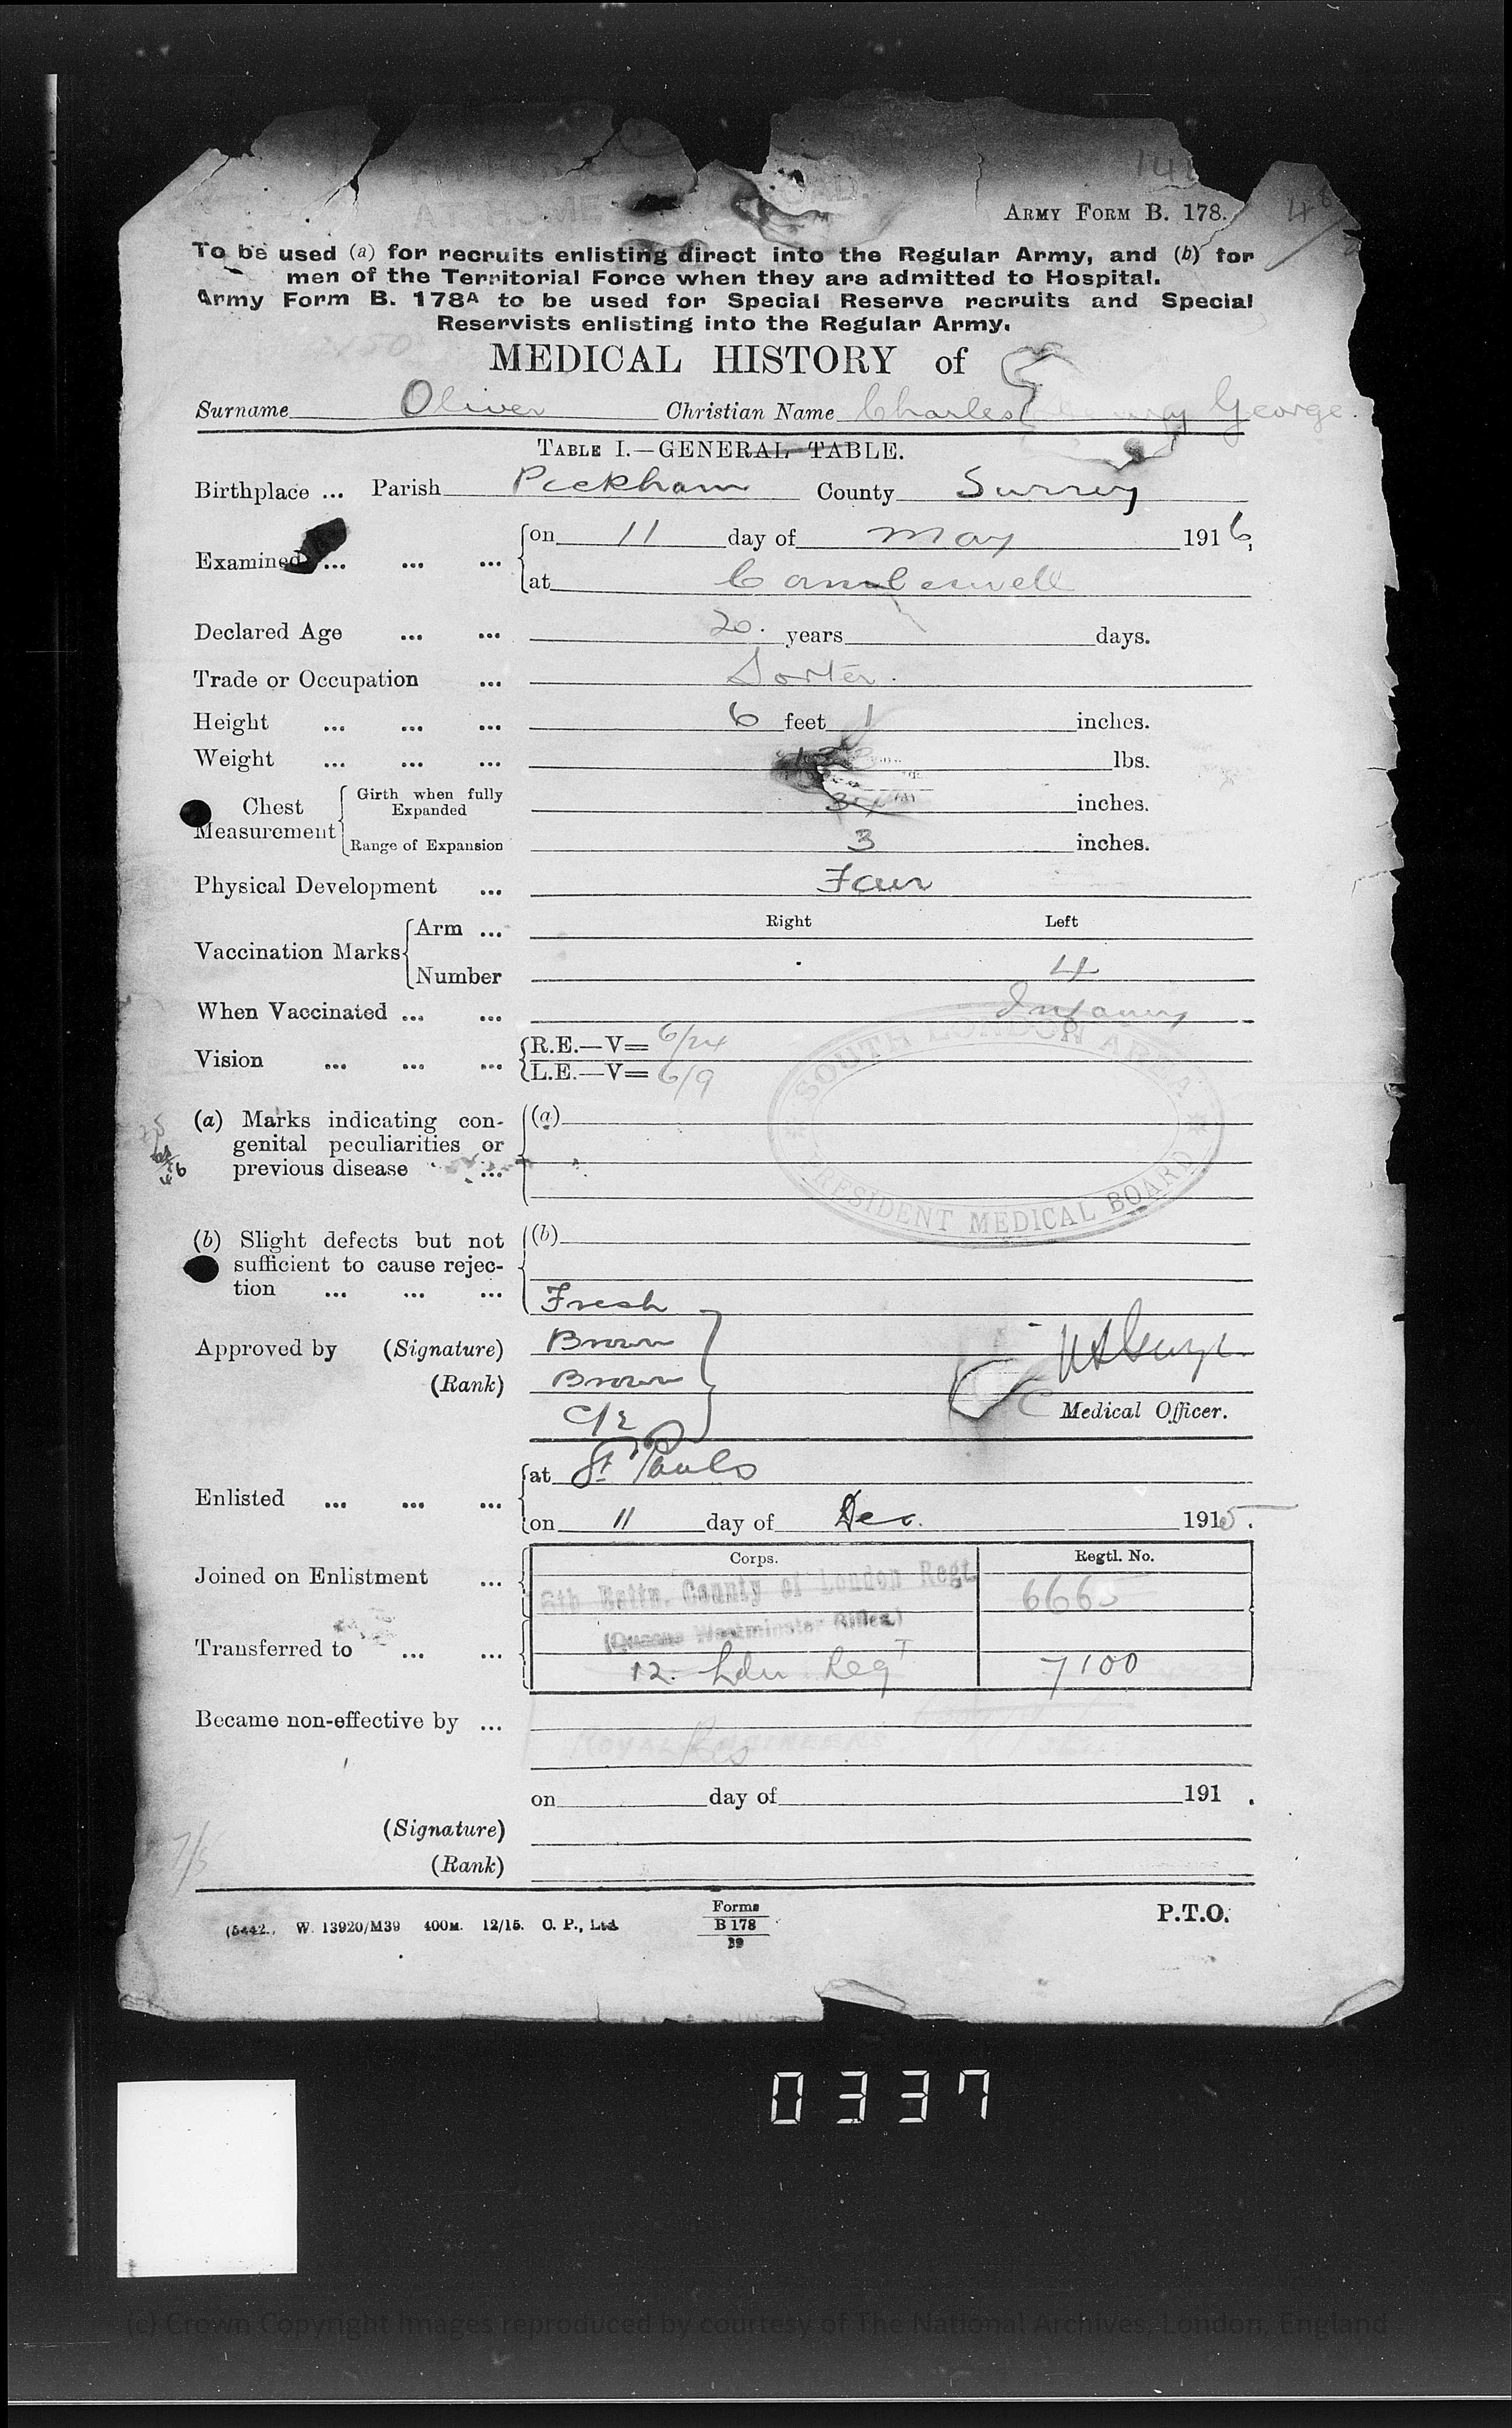 141
ARMY FORM B. 178.
To be used (a) for recruits enlisting direct into the Regular Army, and (b) for
men of the Territorial Force when they are admitted to Hospital.
Army Form B. 178A to be used for Special Reserve recruits and Special
Reservists enlisting into the Regular Army.
MEDICAL HISTORY of
Surname Oliver Christian Name Charles George.
TABLE I.—GENERAL TABLE.
Birthplace ... Parish Peckham County Surrey
Examined ... ... ... on 11 day of May 1916,
at Camberwell
Declared Age ... ... 20. years days.
Trade or Occupation ... Sorter.
Height ... ... ... 6 feet 1 inches.
Weight ... ... ... lbs.
Chest Measurement Girth when fully Expanded 34 inches.
Range of Expansion 3 inches.
Physical Development ... Fair
Right Left
Vaccination Marks Arm ...
Number 4
When Vaccinated ... ... Infancy
Vision ... ... ... R.E.—V= 6/24
L.E.—V= 6/9
SOUTH LONDON AREA
PRESIDENT MEDICAL BOARD
(a) Marks indicating con- (a)
genital peculiarities or
previous disease ...
(b) Slight defects but not (b)
sufficient to cause rejec-
tion ... ... ...
Fresh
Approved by (Signature) Brown
(Rank) Brown
C/E
Medical Officer.
Enlisted ... ... ... at St Pauls
on 11 day of Dec. 1915.
Corps. Regtl. No.
Joined on Enlistment ... Battn. County of London Regt. 666
(Queens Westminster Rifles.)
Transferred to ... ... 12. Ldn Regt 7100
Became non-effective by ...
ROYAL ENGINEERS
on day of 191 .
(Signature)
7/5
(Rank)
(5442. W. 13920/M39 400M. 12/15. C. P., Ltd. Forms
B 178
39
P.T.O.
0337
(c) Crown Copyright Images reproduced by courtesy of The National Archives, London, England